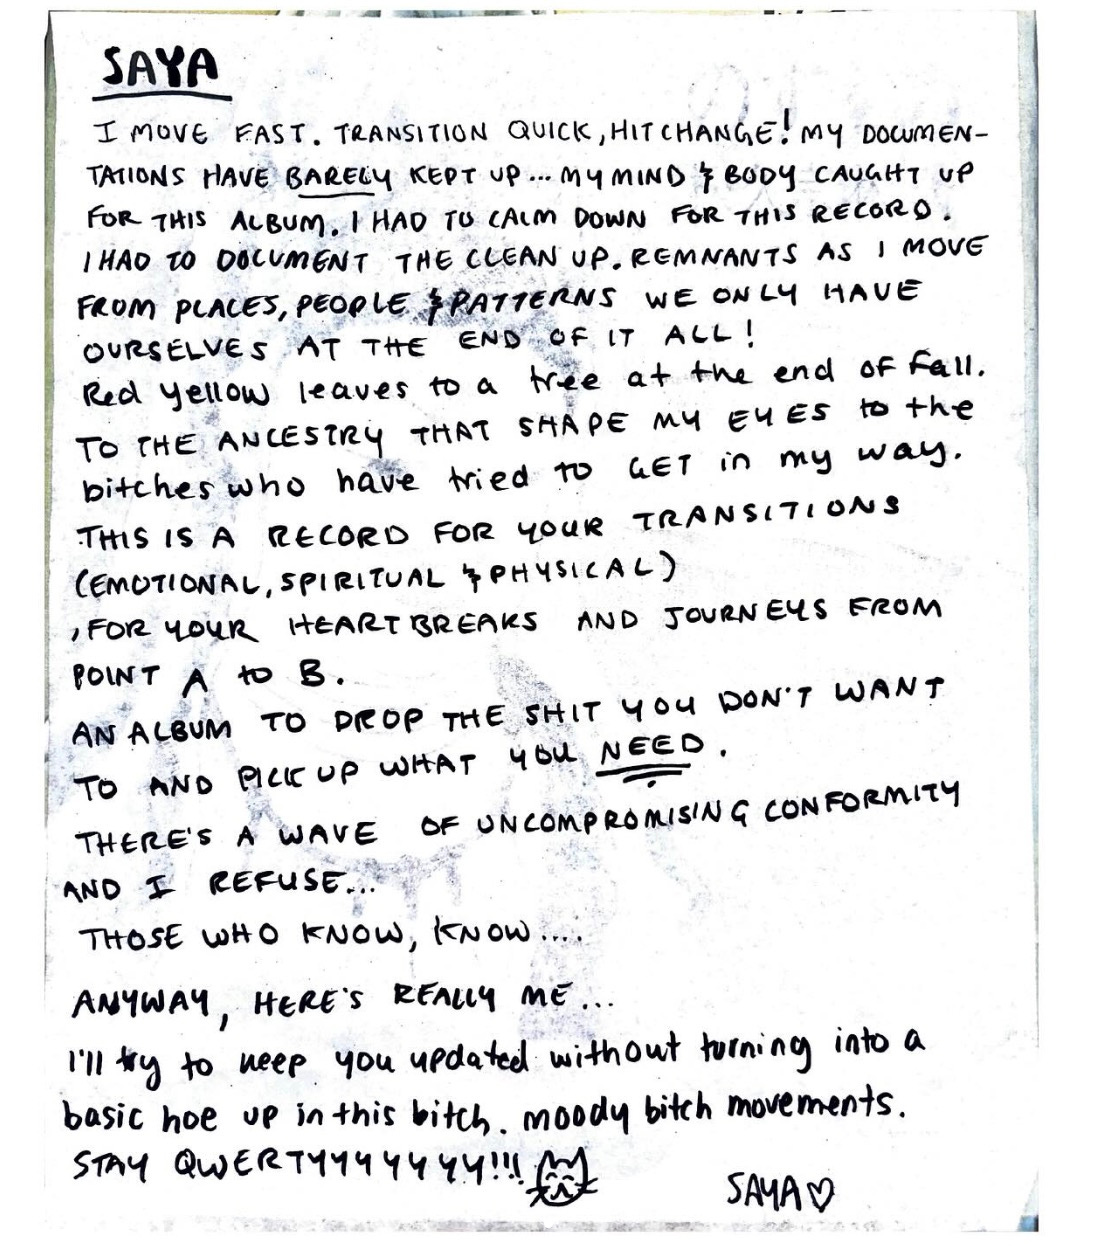 SAYA
I MOVE FAST. TRANSITION QUICK, HIT CHANGE! MY DOCUMEN-
TATIONS HAVE BARELY KEPT UP... MY MIND & BODY CAUGHT UP
FOR THIS ALBUM. I HAD TO CALM DOWN FOR THIS RECORD.
I HAD TO DOCUMENT THE CLEAN UP. REMNANTS AS I MOVE
FROM PLACES, PEOPLE & PATTERNS WE ONLY HAVE
OURSELVES AT THE END OF IT ALL!
Red yellow leaves to a tree at the end of fall.
TO THE ANCESTRY THAT SHAPE MY EYES to the
bitches who have tried to GET in my way.
THIS IS A RECORD FOR YOUR TRANSITIONS
(EMOTIONAL, SPIRITUAL & PHYSICAL)
, FOR YOUR HEARTBREAKS AND JOURNEYS FROM
POINT A to B.
AN ALBUM TO DROP THE SHIT YOU DON'T WANT
TO AND PICK UP WHAT YOU NEED.
THERE'S A WAVE OF UNCOMPROMISING CONFORMITY
AND I REFUSE...
THOSE WHO KNOW, KNOW....
ANYWAY, HERE'S REALLY ME...
I'll try to keep you updated without turning into a
basic hoe up in this bitch. moody bitch movements.
STAY QWERTYYYYYYY!!!
SAYA♡